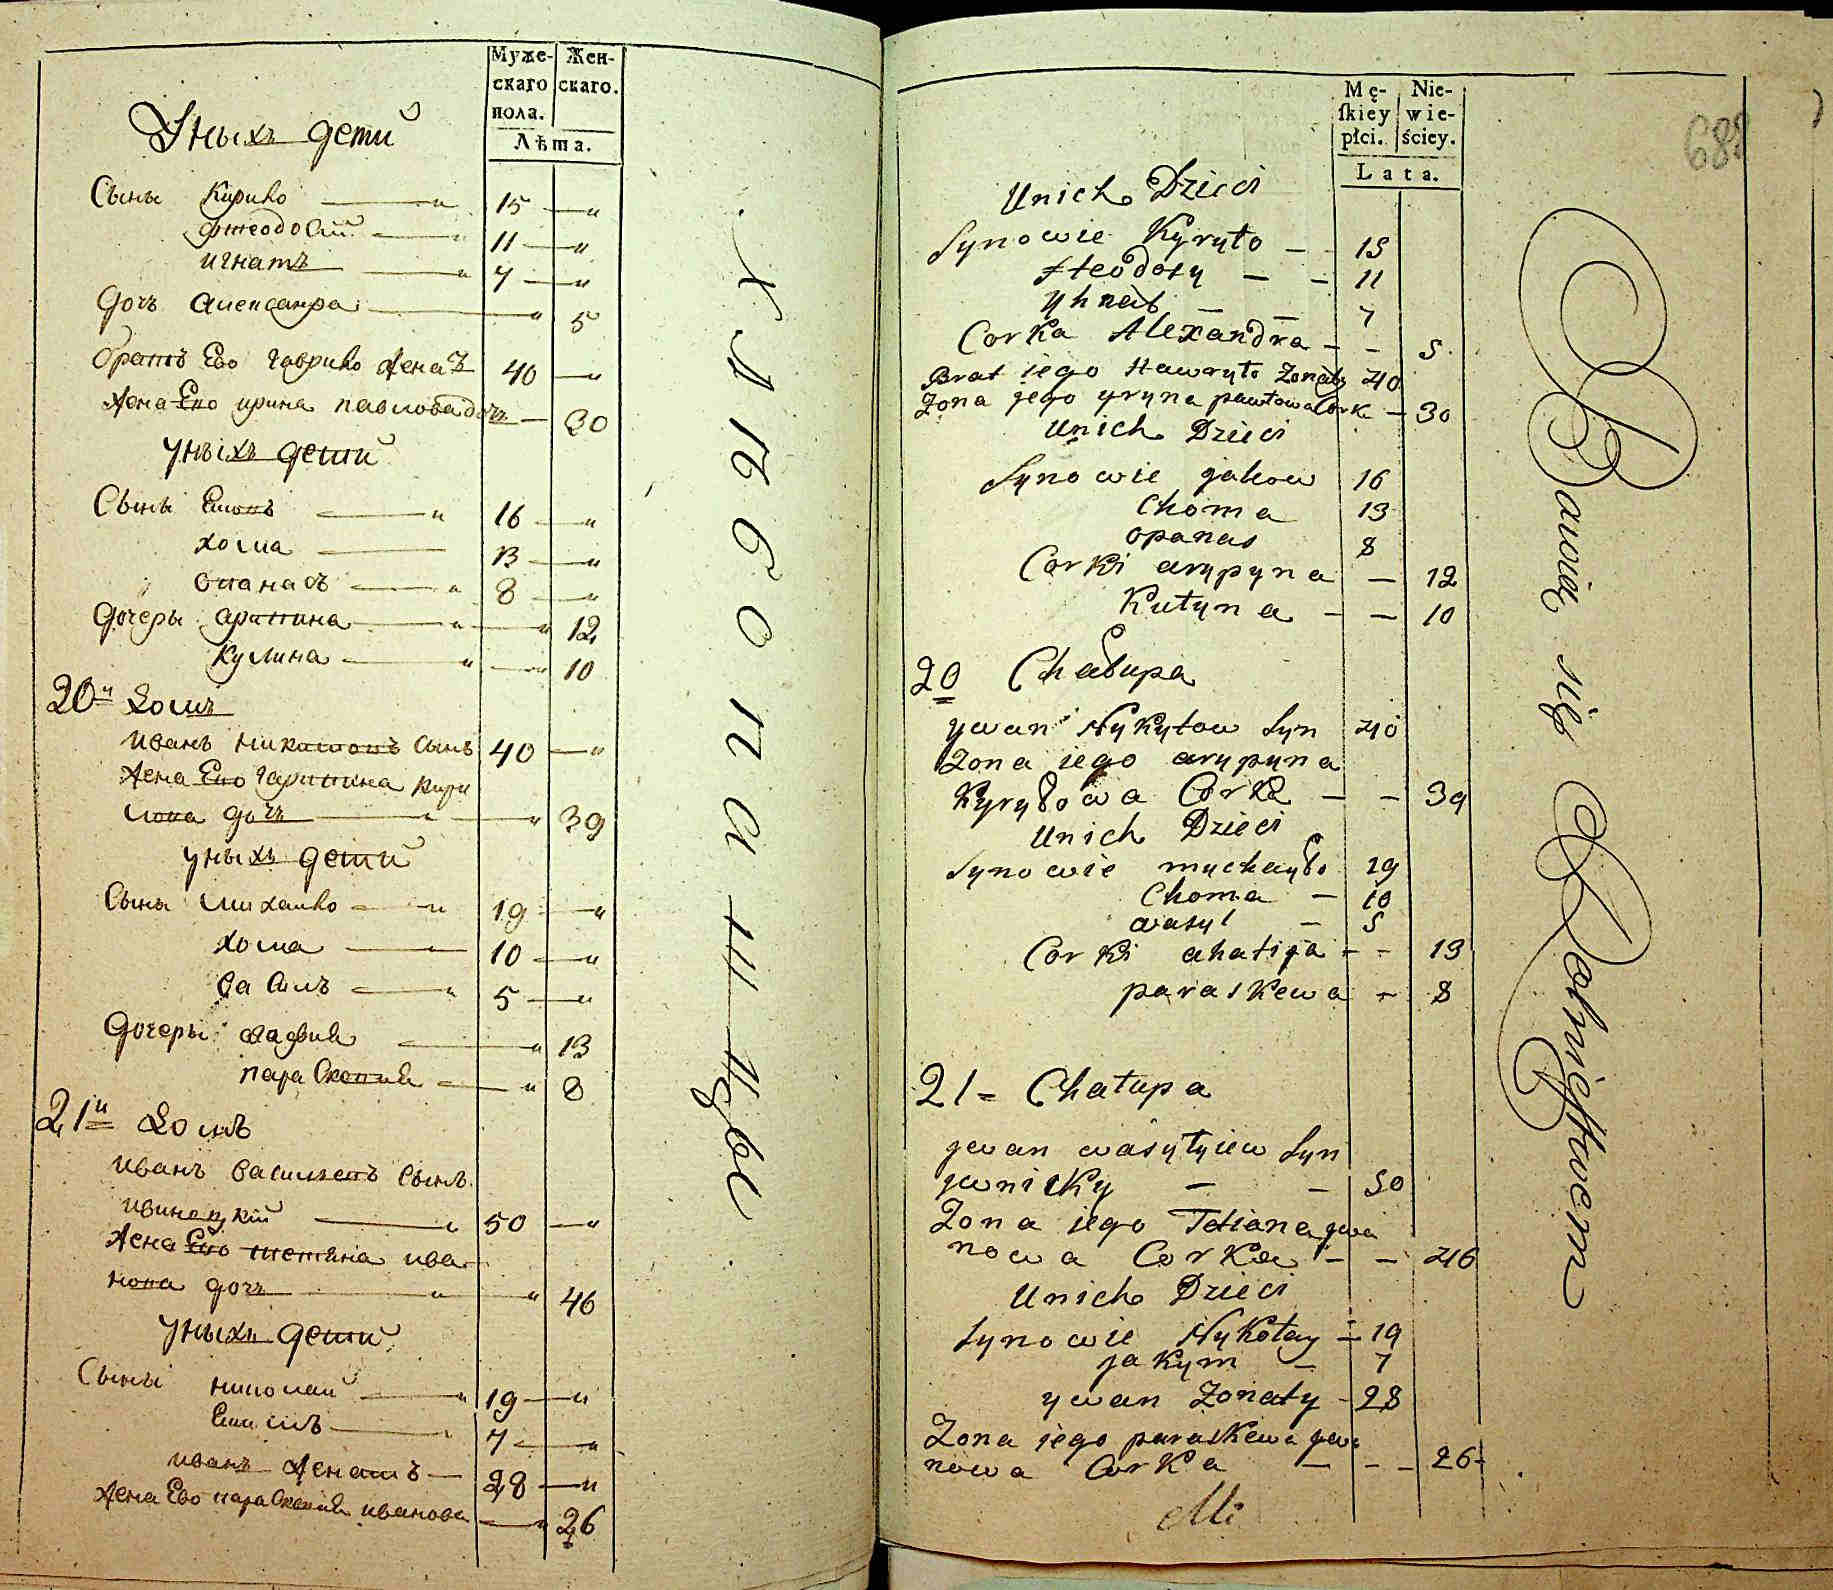 Муже-
скаго
пола.
Жен-
скаго.
Лѣта.
Уныхъ дети
Сыны Кирило 15
Фтеодосий 11
игнатъ 7
дочь александра 5
братъ Ево гаврило женатъ 40
жена Ево ирина павлова дочь 30
Уныхъ дети
Сыны 16
хома 13
опанасъ 8
дочеры арипина 12
кулина 10
20й домъ
иванъ никитовъ сынъ 40
жена Ево гарипина кири
лова дочь 39
уныхъ дети
Сыны михаило 19
хома 10
василь 5
дочеры 13
параскевия 8
21й домъ
иванъ васильевъ сынъ
ивинецкий 50
жена Ево тетяна ива
нова дочь 46
Уныхъ дети
Сыны николай 19
Екимъ 7
иванъ женатъ 28
жена Ево параскевия иванова 26
хлѣбопашцы
Mę-
ſkiey
płci.
Nie-
wie-
ściey.
Lata.
688
Unich Dzieci
Synowie Kyryło 15
Fteodosy 11
Yhnat 7
Corka Alexandra 5
Brat iego Hawryło Zonaty 40
Zona iego yryna pawłowa Corka 30
Unich Dzieci
Synowie jakow 16
Choma 13
opanas 8
Corki arypyna 12
Kułyna 10
20 Chałupa
ywan Nykytow Syn 40
Zona iego arypyna
Kyryłowa Corka 39
Unich Dzieci
Synowie mychayło 19
Choma 10
wasyl 5
Corki ahafija 13
paraskewa 8
21 Chałupa
jwan wasyłyiew Syn
jwnicky 50
Zona iego Tetiana jwa
nowa Corka 46
Unich Dzieci
Synowie Nykołay 19
jakym 7
ywan Zonaty 28
Zona iego paraskewa jwa
nowa Corka 26
Mi
Bawią się Rolnictwem